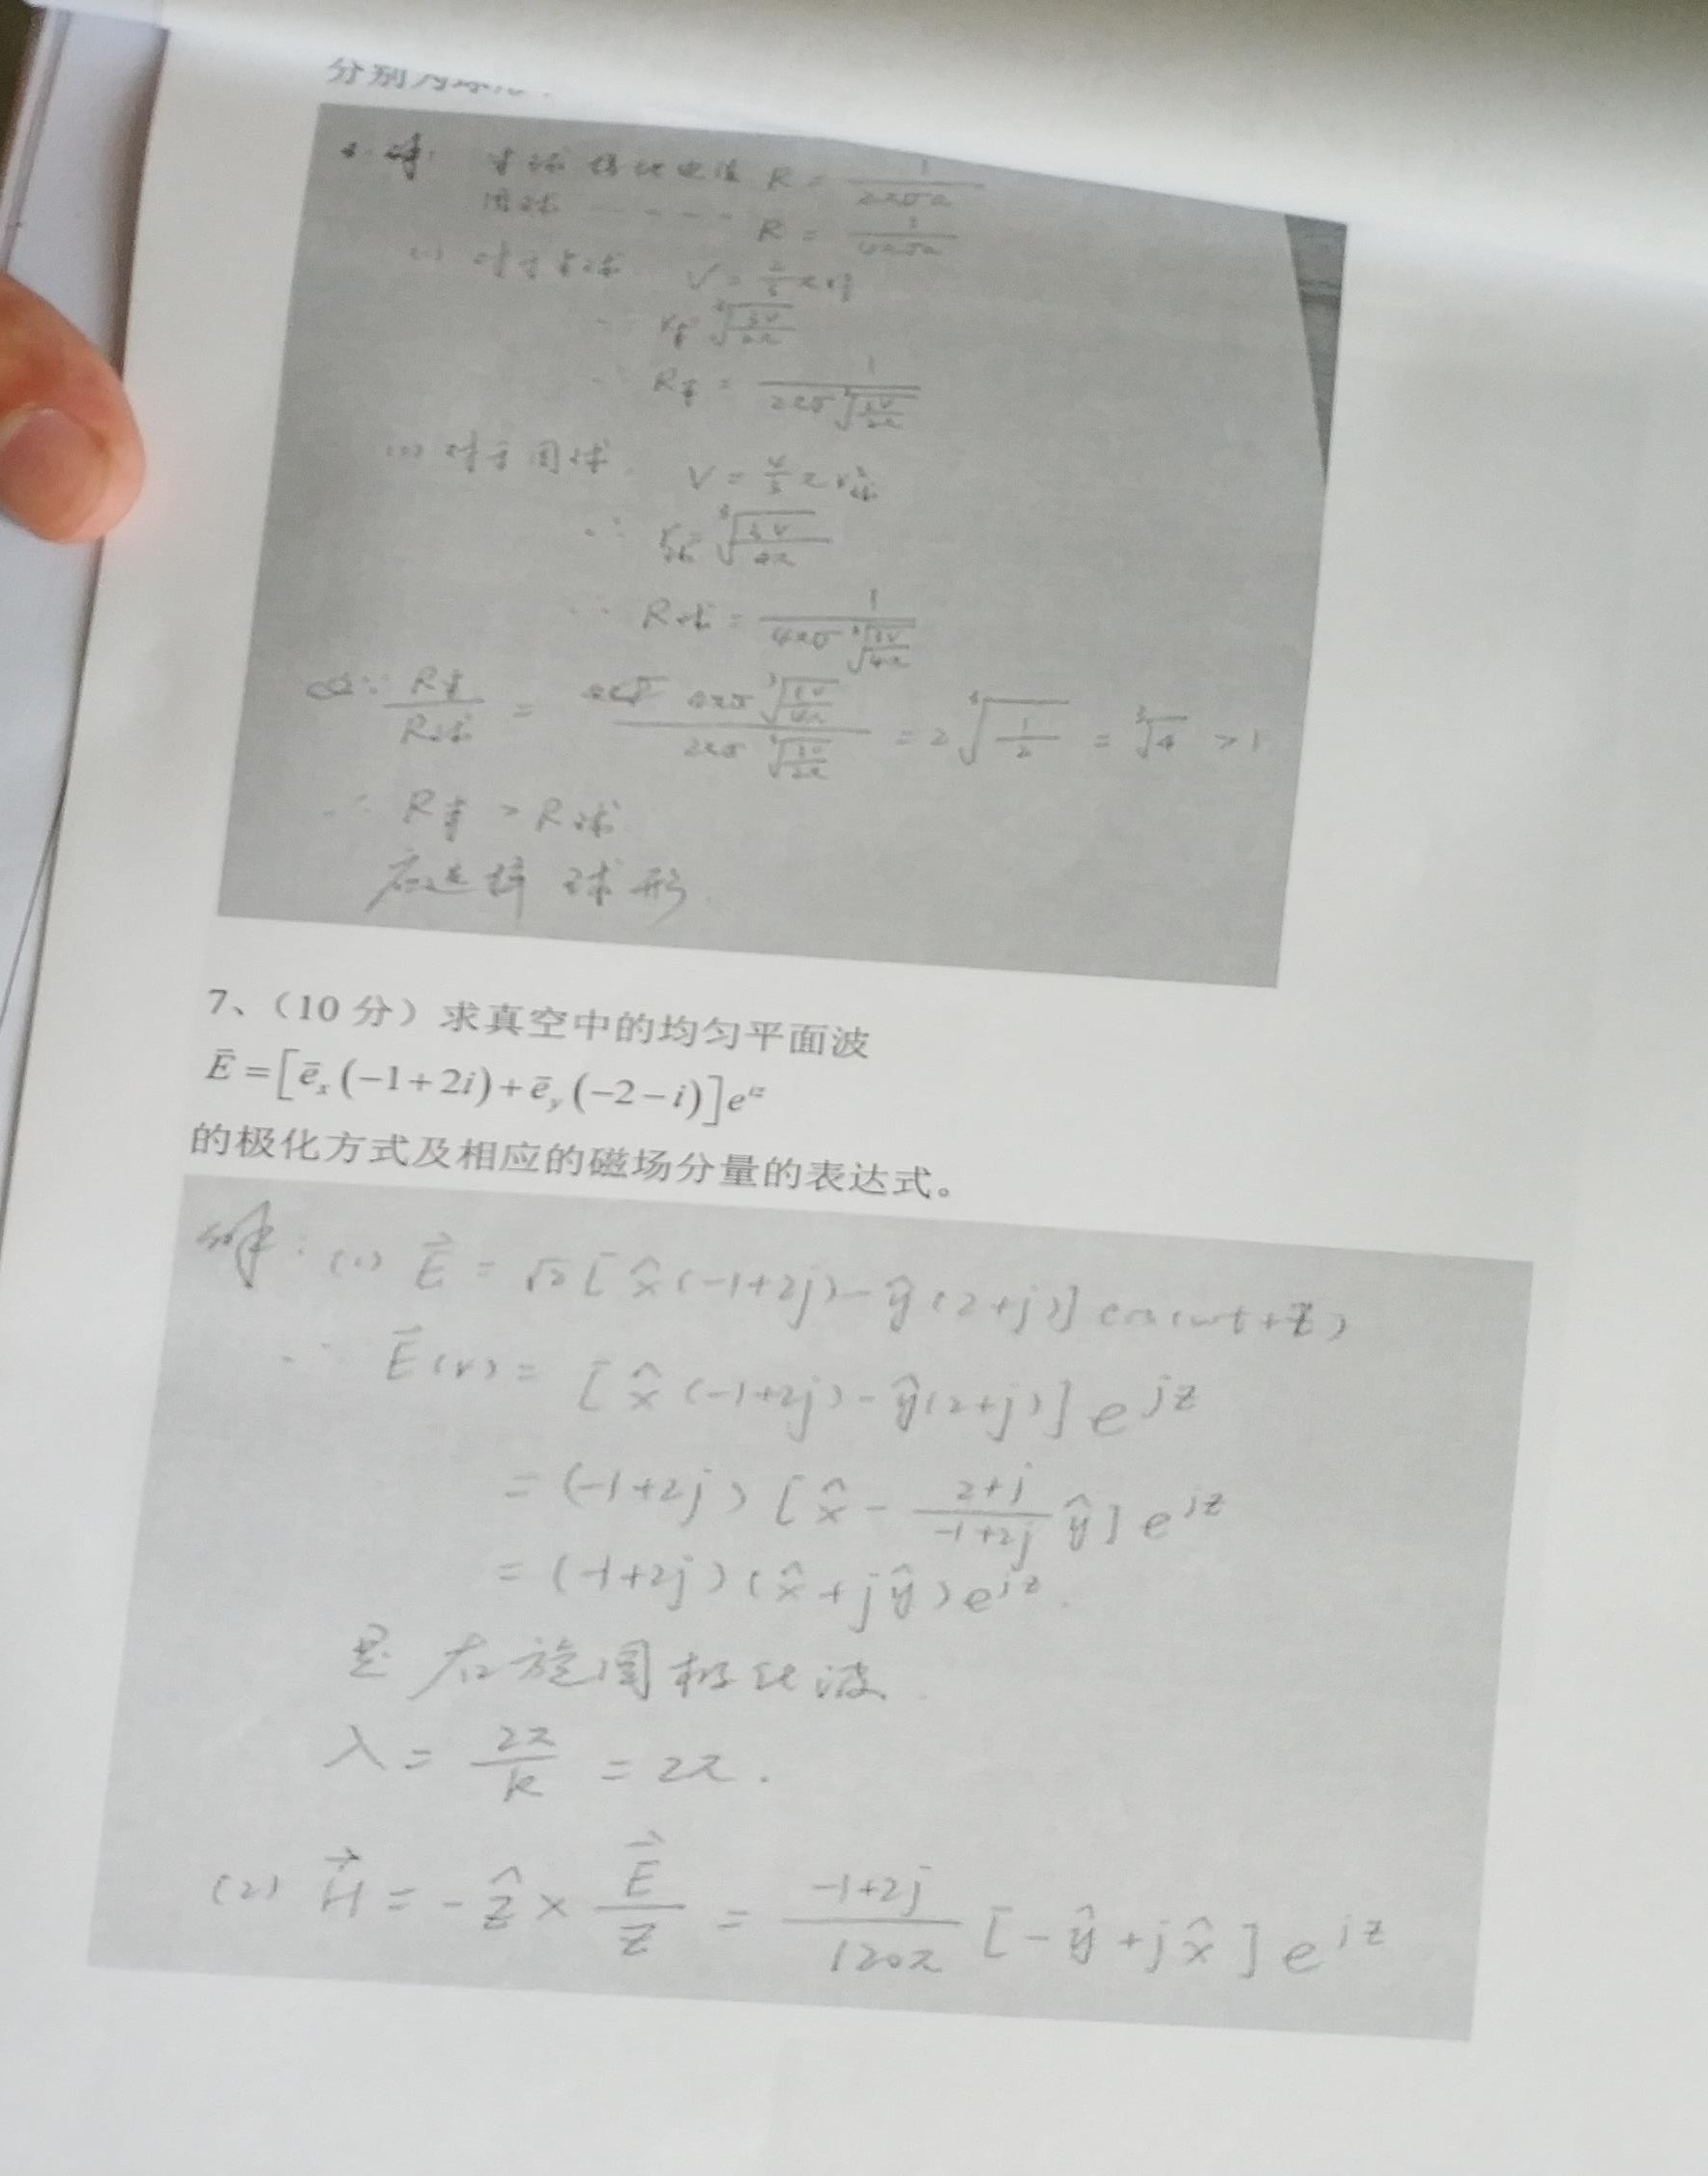 分别
解: 半球 接地电阻 R = 1/(2πσa)
圆球 ---- R = 1/(4πσa)
(1) 对于半球 V = 2/3 π r半³
r半 = ∛(3V/2π)
∴ R半 = 1/(2πσ ∛(3V/2π))
(2) 对于圆球. V = 4/3 π r球³
∴ r球 = ∛(3V/4π)
∴ R球 = 1/(4πσ ∛(3V/4π))
∵ R半/R球 = 4πσ ∛(3V/4π) / (2πσ ∛(3V/2π)) = 2 ∛(1/2) = ∛4 > 1
∴ R半 > R球
应选择 球形.
7、（10 分）求真空中的均匀平面波
Ē = [ē_x (−1+2i) + ē_y (−2−i)] e^{iz}
的极化方式及相应的磁场分量的表达式。
解: (1) E⃗ = √2 [x̂(-1+2j) - ŷ(2+j)] cos(ωt+z)
∴ E⃗(r) = [x̂(-1+2j) - ŷ(2+j)] e^{jz}
= (-1+2j) [x̂ - (2+j)/(-1+2j) ŷ] e^{jz}
= (-1+2j)(x̂+jŷ) e^{jz}.
是 右旋圆极化波.
λ = 2π/k = 2π.
(2) H⃗ = -ẑ × E⃗/Z = (-1+2j)/120π [-ŷ+jx̂] e^{jz}